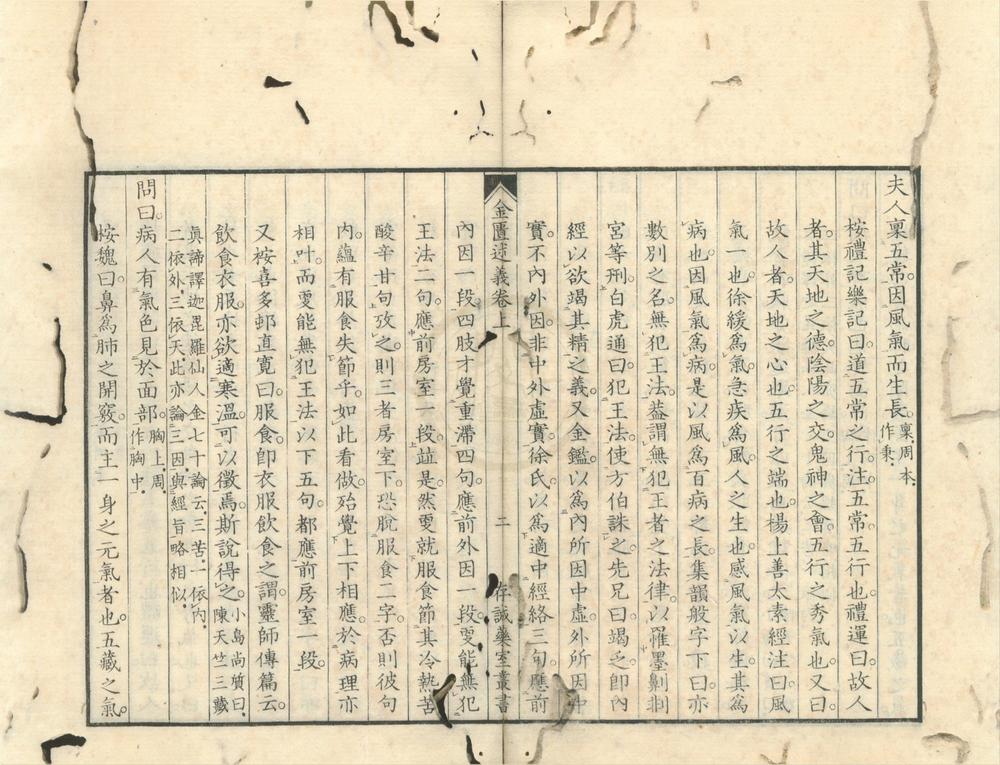 夫人稟五常。因風氣而生長。稟、周本、作秉、
桉禮記樂記曰。道五常之行。注。五常。五行也。禮運曰。故人
者。其天地之德。陰陽之交。鬼神之會。五行之秀氣也。又曰。
故人者。天地之心也。五行之端也。楊上善太素經注曰。風
氣一也。徐緩爲氣。急疾爲風。人之生也。感風氣以生。其爲
病也。因風氣爲病。是以風爲百病之長。集韻般字下曰。亦
數別之名。無犯王法。蓋謂無犯王者之法律。以罹墨劓剕
宮等刑。白虎通曰。犯王法。使方伯誅之。先兄曰。竭乏。卽內
經以欲竭其精之義。又金鑑以爲內所因中虛。外所因中
實。不內外因。非中外虛實。徐氏以爲適中經絡三句。應前
金匱述義卷上 二 存誠藥室叢書
內因一段。四肢才覺重滯四句。應前外因一段。更能無犯
王法二句。應前房室一段。竝是。然更就服食節其冷熱苦
酸辛甘句攷之。則三者房室下。恐脫服食二字。否則彼句
內。蘊有服食失節乎。如此看做。殆覺上下相應。於病理亦
相叶。而更能無犯王法以下五句。都應前房室一段。
又桉喜多邨直寬曰。服食。卽衣服飲食之謂。靈師傳篇云。
飲食衣服。亦欲適寒溫。可以徵焉。斯說得之。小島尚質曰、陳天竺三藏
眞諦譯迦毘羅仙人金七十論云、三苦、一依內、二依外、三依天、此亦論三因、與經旨略相似、
問曰。病人有氣色見於面部。胸上、周、作胸中、
桉魏曰。鼻爲肺之開竅。而主一身之元氣者也。五藏之氣。